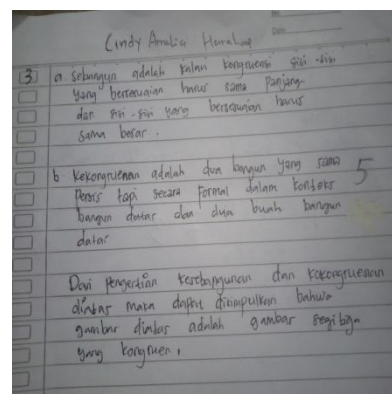 No
Date
Cindy Amalia Harahap
3 a. sebangun adalah kalau kongruensi sisi-sisi
yang bersesuaian harus sama panjang
dan sisi-sisi yang bersesuaian harus
sama besar.
b kekongruenan adalah dua bangun yang sama
persis tapi secara formal dalam konteks
bangun datar dan dua buah bangun
datar
5
Dari pengertian kesebangunan dan kekongruenan
diatas maka dapat disimpulkan bahwa
gambar diatas adalah gambar segitiga
yang kongruen,